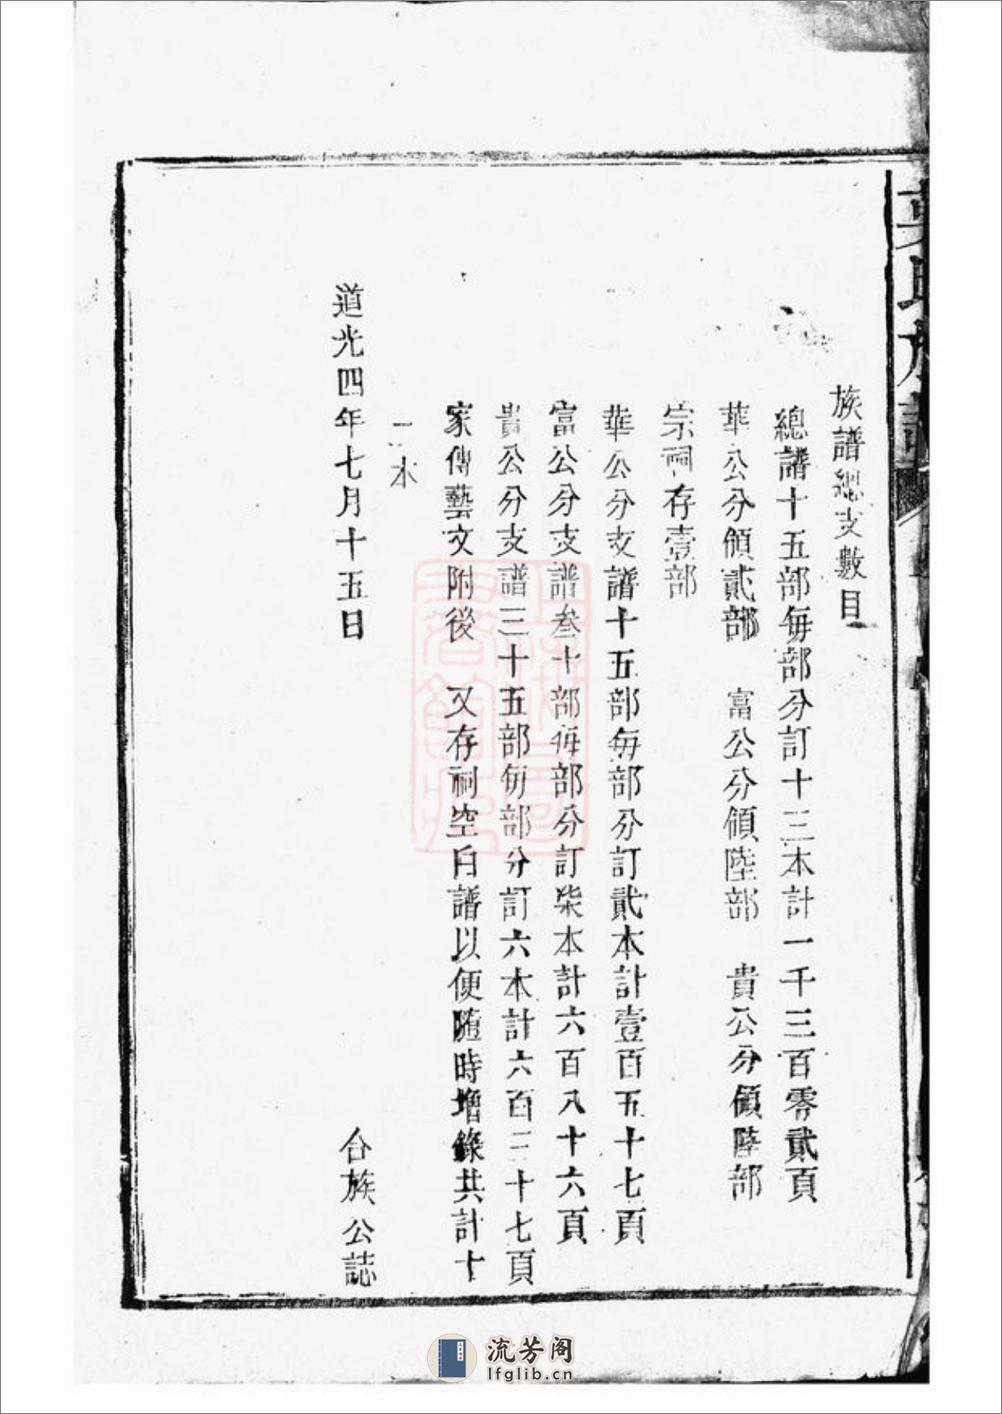 吳氏族譜
族譜總支數目
總譜十五部每部分訂十三本計一千三百零貳頁
華公分領貳部 富公分領陸部 貴公分領陸部
宗祠存壹部
華公分支譜十五部每部分訂貳本計壹百五十七頁
富公分支譜叄十部每部分訂柒本計六百八十六頁
貴公分支譜三十五部每部分訂六本計六百三十七頁
家傳藝文附後 又存祠空白譜以便隨時增錄共計十
二本
道光四年七月十五日
合族公誌
流芳阁
lfglib.cn